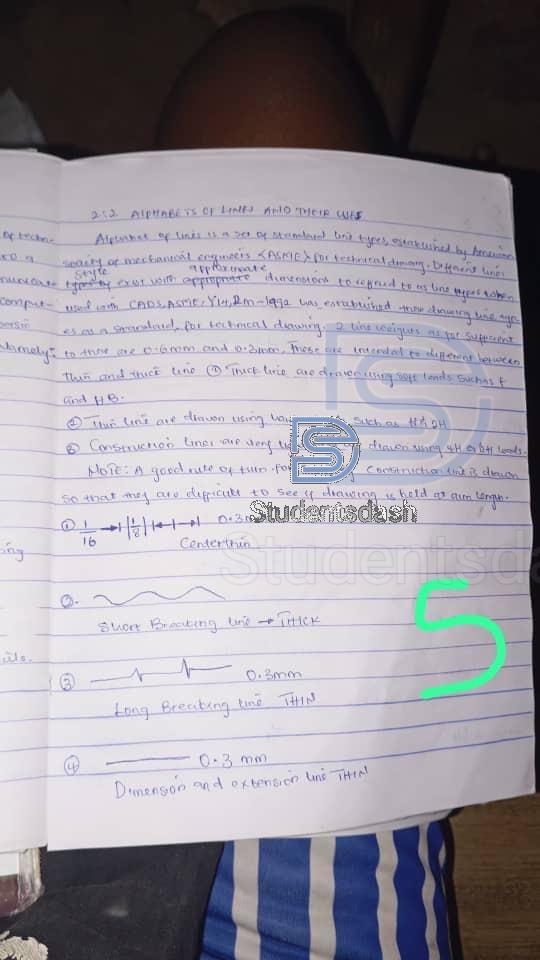 2:2 ALPHABETS OF LINES AND THEIR USES
Alphabet of lines is a set of standard line types, established by American
society of mechanical engineers <ASME> for technical drawing. Different line
style approximate
types exist with appropriate dimensions to refered to as line types when
used with CADS, ASME, Y14, 2m-1992 has established these drawing line typ-
es as a standard for technical drawing. 2 line weights as for sufficient
to these are 0.6mm and 0.3mm, These are intended to different between
Thin and thick line ① Thick line are drawn using soft leads such as F
and HB.
② Thin line are drawn using such as H & 2H
③ Construction lines are very drawn using 4H or 6H leads.
NOTE: A good rule of tum for Construction line is drawn
so that they are difficult to see if drawing is held at arm length.
① 1/16 1/8 0.3m
Center thin
②.
Short Breaking line → THICK
③ 0.3mm
Long Breaking line THIN
④ 0.3 mm
Dimension and extension line THIN
of techn-
to a
comput-
Namely:
ing
5
Studentsdash
Studentsda